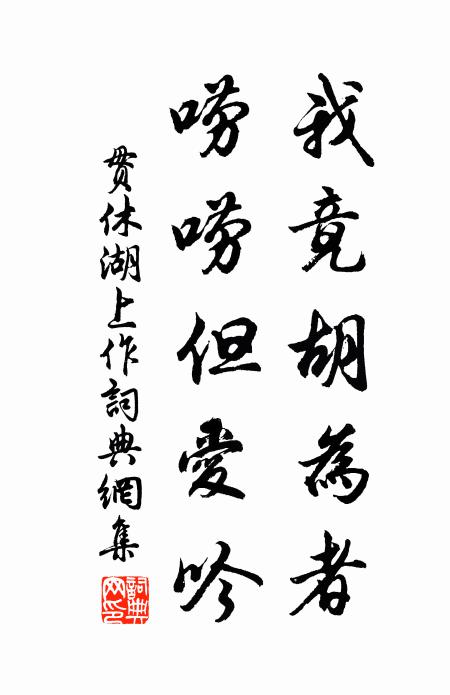 我竟胡為者
嘮嘮但愛吟
貫休湖上作詞典網集
詞典網印